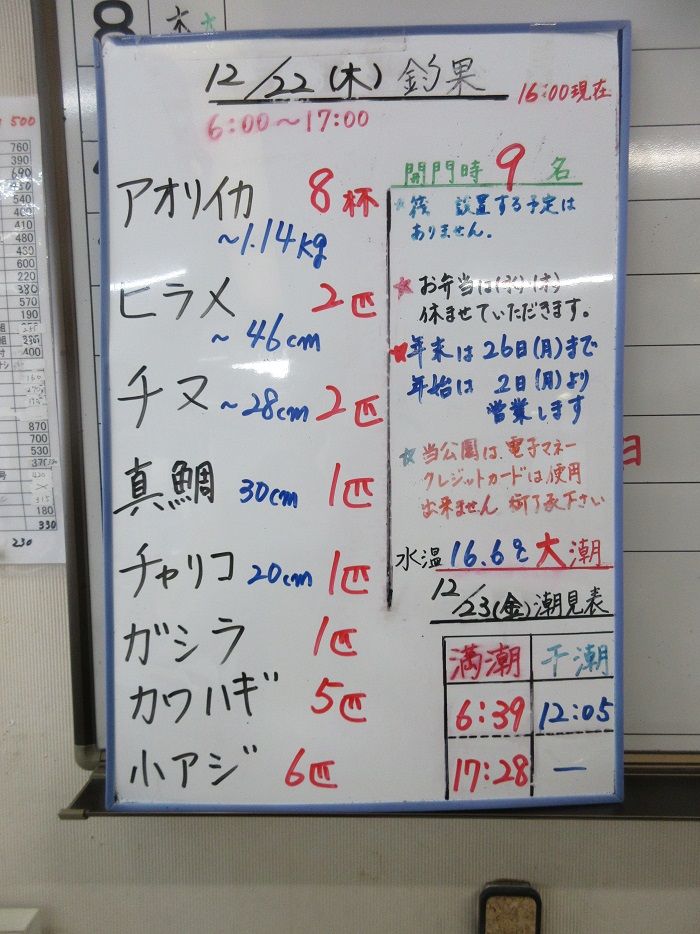 8
木
12/22(木) 釣果
16:00現在
6:00〜17:00
アオリイカ 8杯
〜1.14kg
ヒラメ 2匹
〜46cm
チヌ 〜28cm 2匹
真鯛 30cm 1匹
チャリコ 20cm 1匹
ガシラ 1匹
カワハギ 5匹
小アジ 6匹
開門時 9名
☆筏 設置する予定は
ありません。
☆お弁当は(水)(木)
休ませていただきます。
★年末は26日(月)まで
年始は 2日(月)より
営業します
☆当公園は、電子マネー
クレジットカードは使用
出来ません 御了承下さい
水温 16.6℃ 大潮
12/23(金)潮見表
満潮 干潮
6:39 12:05
17:28 ー
日
500
760
390
690
540
400
410
480
430
600
220
380
570
190
400
870
700
530
180
330
230